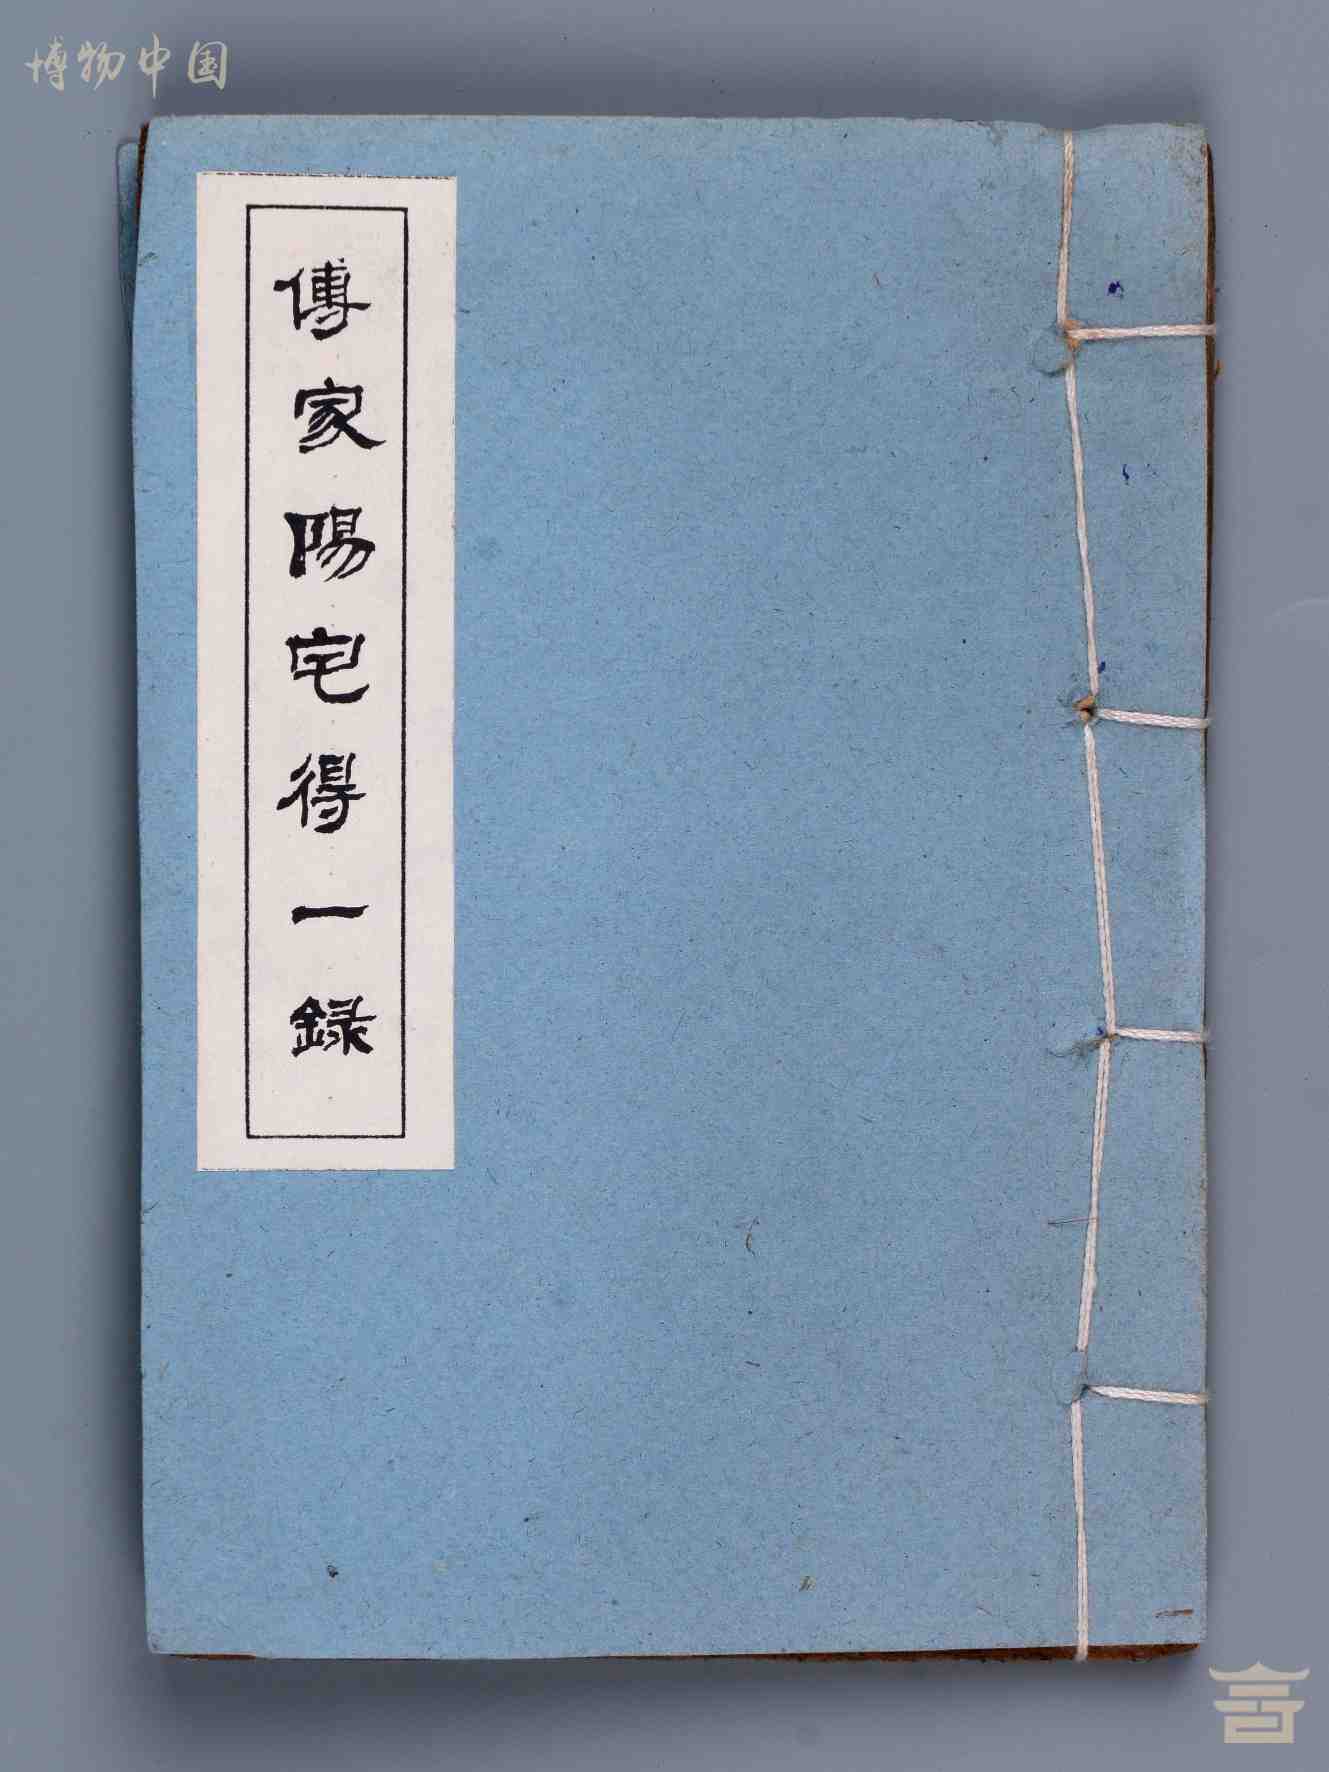 博物中国
傅家陽宅得一録